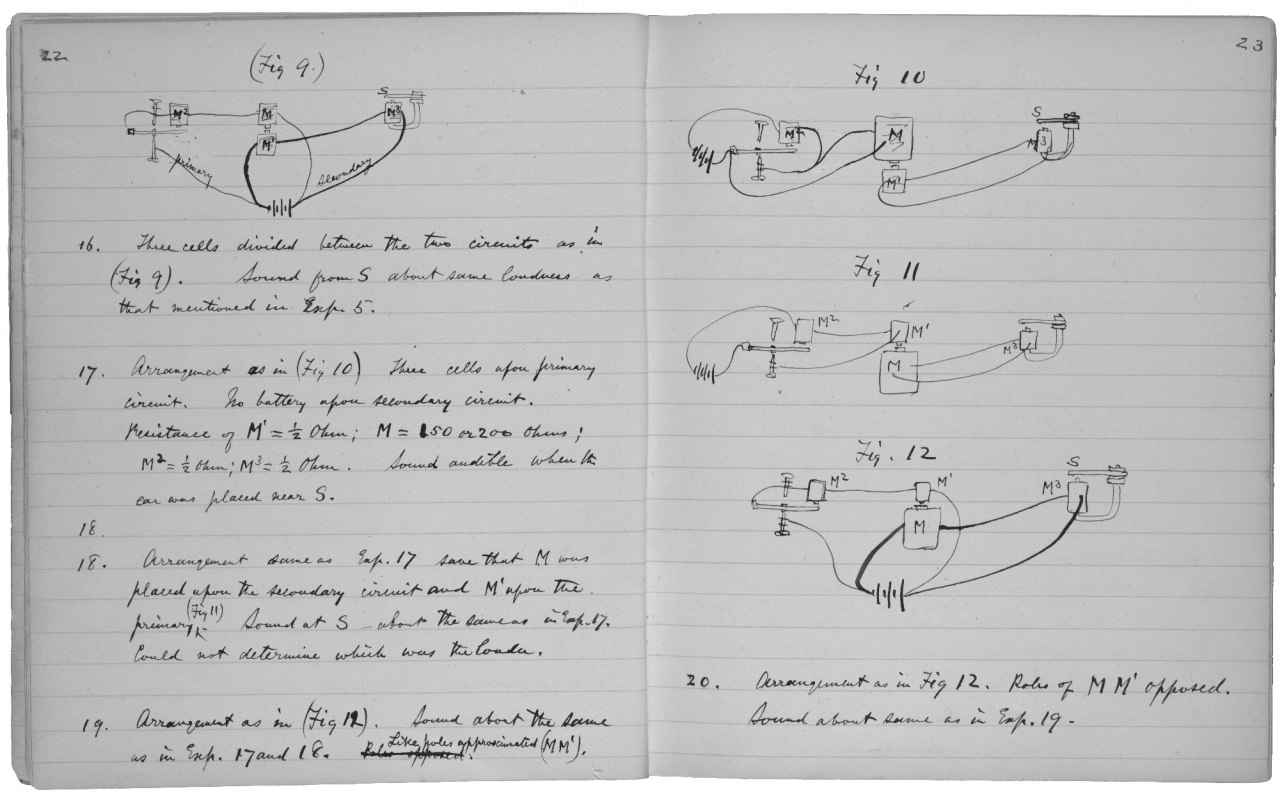 22
(Fig 9.)
S
M² M M³
M'
primary
secondary
16. Three cells divided between the two circuits as in
(Fig 9). Sound from S about same loudness as
that mentioned in Exp. 5.
17. Arrangement as in (Fig 10) Three cells upon primary
circuit. No battery upon secondary circuit.
Resistance of M' = ½ Ohm; M = 150 or 200 Ohms;
M² = ½ Ohm; M³ = ½ Ohm. Sound audible when the
ear was placed near S.
18.
18. Arrangement same as Exp. 17 save that M was
placed upon the secondary circuit and M' upon the
primary (Fig 11) Sound at S about the same as in Exp. 17.
Could not determine which was the louder.
19. Arrangement as in (Fig 12). Sound about the same
as in Exp. 17 and 18. Poles opposed. Like poles approximated (MM').
23
Fig 10
S
M² M M3
M'
Fig 11
M² M'
M³
M
Fig. 12
S
M² M' M³
M
20. Arrangement as in Fig 12. Poles of M M' opposed.
Sound about same as in Exp. 19.